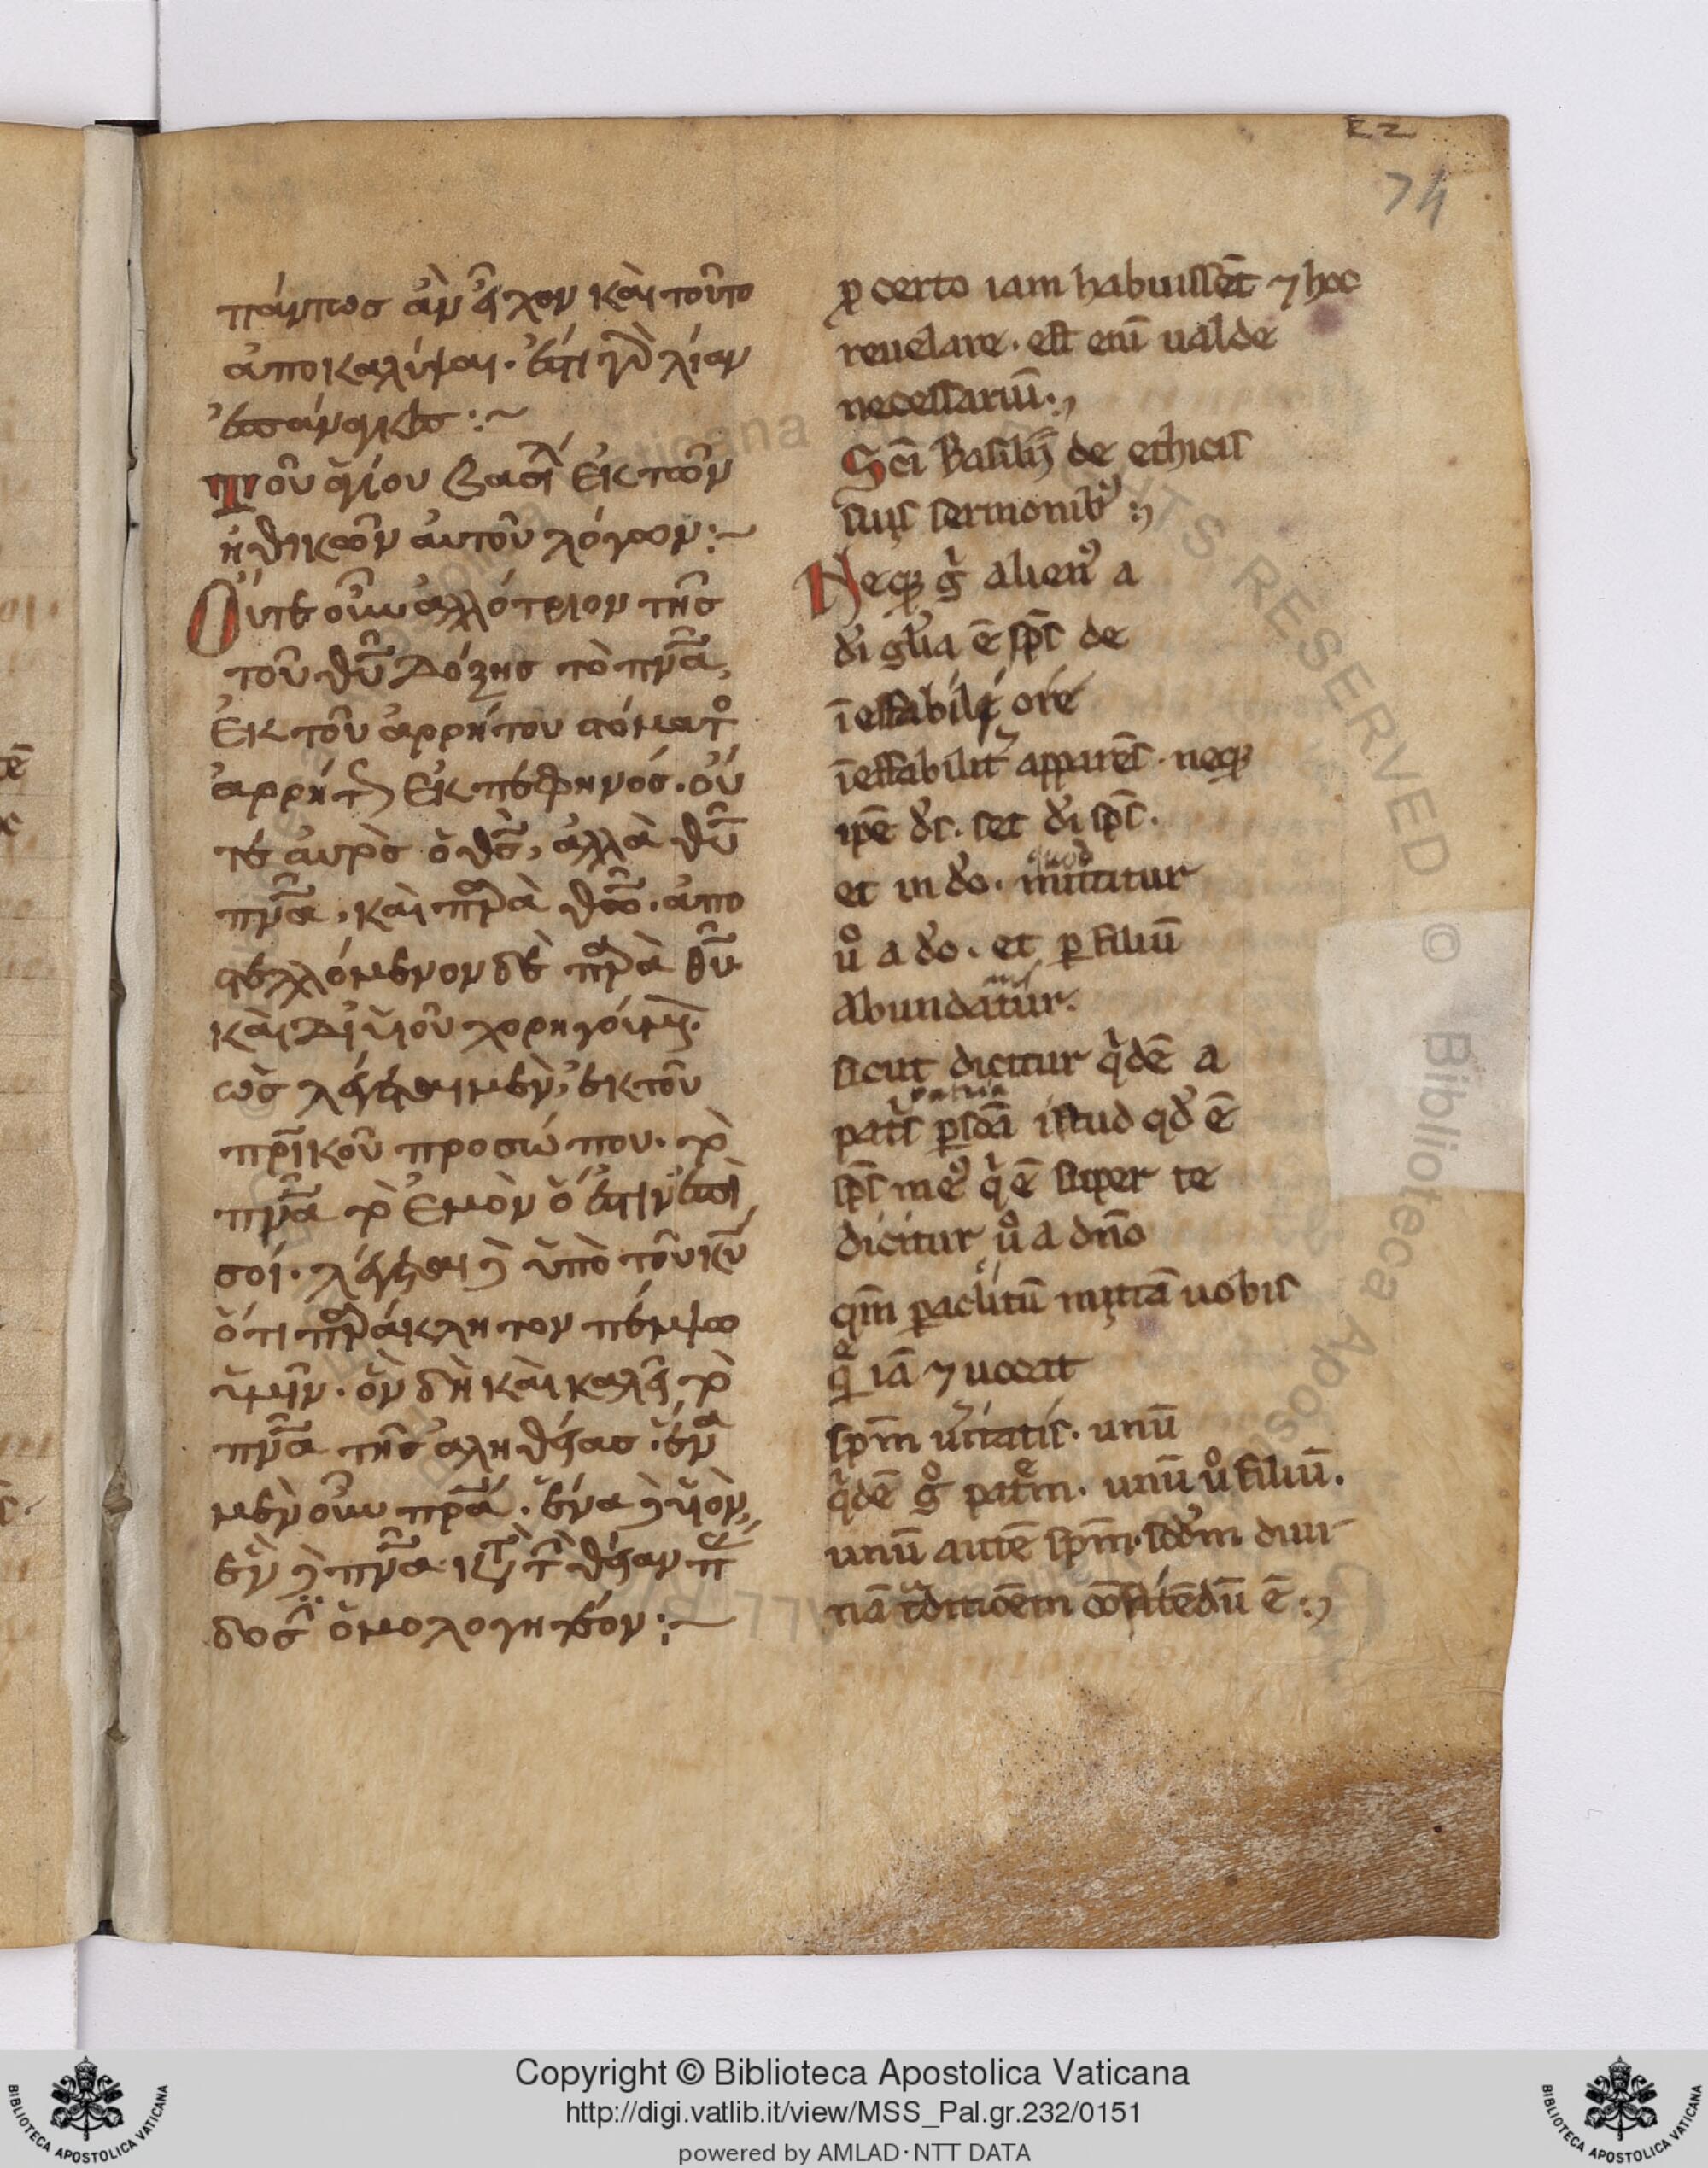 E Z
74
πάντως ἂν εἶχον καὶ τοῦτο
ἀποκαλύψαι· ἔστι γὰρ λίαν
Τοῦ ἁγίου βασιλ ἐκ τῶν
ἠθικῶν αὐτοῦ λόγων:~
Οὔτε οὖν ἀλλότριον τῆς
τοῦ θῦ δόξης τὸ πνᾶ,
ἐκ τοῦ ἀρρήτου στόματ
ἀρρήτως ἐκπεφηνός· οὔ
τε αὐτὸς ὁ θς, ἀλλὰ θῦ
πνᾶ, καὶ παρὰ θῶ· ἀπο
στελλόμενον δὲ παρὰ θῦ
καὶ δι υἱοῦ χορηγούμε·
ὡς λέγεται μὲν, ἐκ τοῦ
πρικοῦ προσώπου· τὸ
πνᾶ τὸ ἐμὸν ὅ ἐστιν ἐπὶ
σοί· λέγεται δὲ ὑπὸ τοῦ κυ
ὅτι παράκλητον πέμψω
ὑμῖν· ὃν δὴ καὶ καλεῖ τὸ
πνᾶ τῆς ἀληθείας· ἕνα
μὲν οὖν πρα· ἕνα δὲ υἱὸν,
ἓν δὲ πνᾶ κατὰ τὴν θείαν πα
δοσ ὁμολογητέον:~
p certo iam habuissēt ⁊ hoc
reuelare· est enī ualde
necessariū·,
Scī Basilij de ethicis
suis sermonib:,
Neq g alien a
dī glīa ē spc de
īeffabili ore
īeffabilit apparēs· neq
ipē ds· set dī spc·
et in dō· quod mittitur
u a dō· et p filiū
Abundatur·
sicut dicitur qdē a
patris psōa istud qd ē
spc me q ē super te
dicitur u a dnō
qm paclitū mittā uobis
quē iā ⁊ uocat
spm uitatis· unū
qdē g patrem· unū u filiū·
unū autē spm· scdm diui
nā tditiōem cōfitēdū ē:,
Copyright © Biblioteca Apostolica Vaticana
http://digi.vatlib.it/view/MSS_Pal.gr.232/0151
powered by AMLAD·NTT DATA
BIBLIOTECA APOSTOLICA VATICANA
BIBLIOTECA APOSTOLICA VATICANA